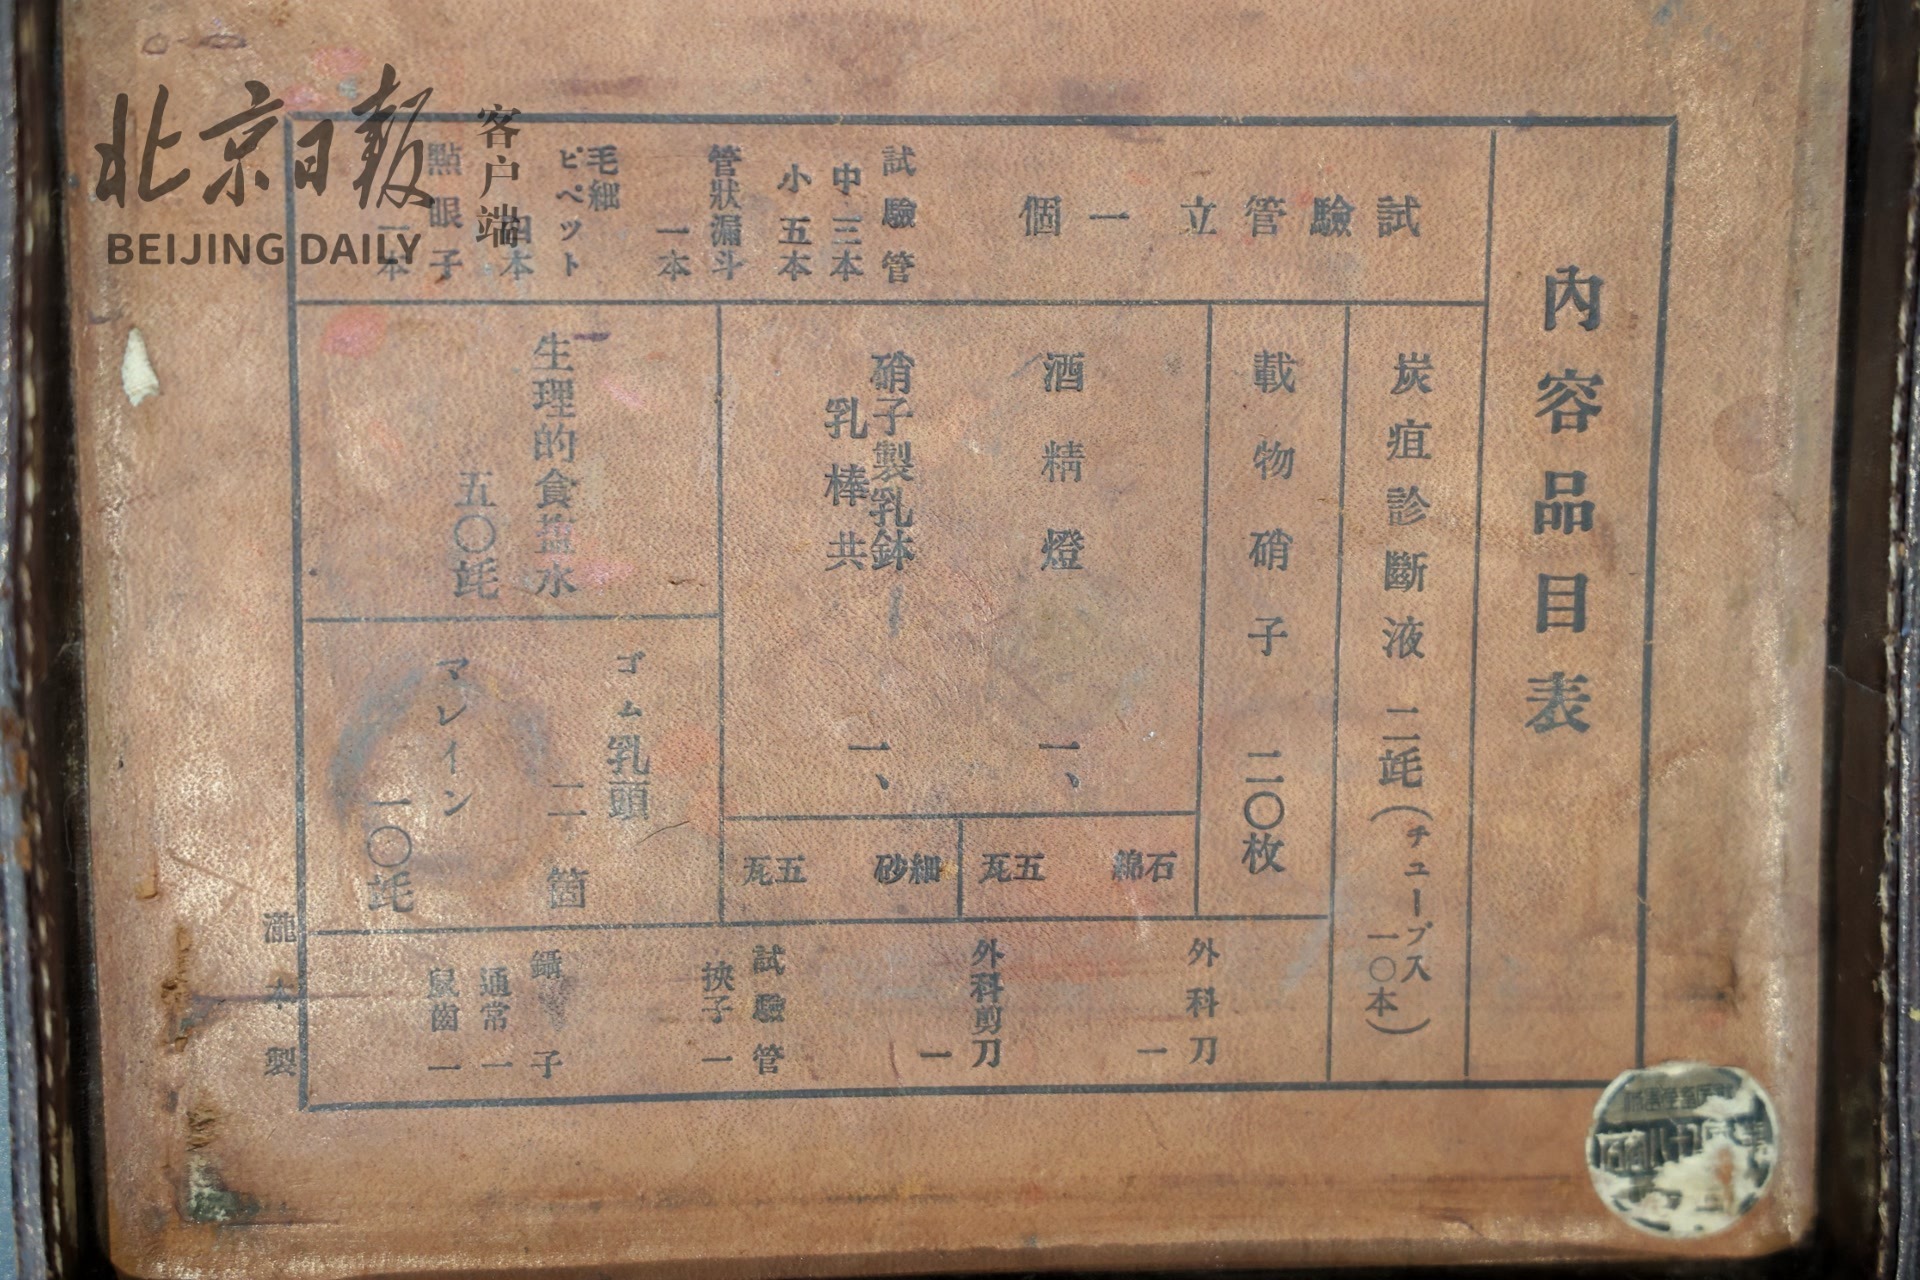 北京日報
客户端
BEIJING DAILY
內容品目表
試驗管立一個
試驗管
中三本
小五本
管狀漏斗
一本
毛細
ピペット
四本
點眼子
一本
炭疽診斷液 二竓(チューブ入
一〇本)
載物硝子 二〇枚
酒精燈 一、
硝子製乳鉢
乳棒共 一、
石綿 五瓦
細砂 五瓦
生理的食塩水
五〇竓
ゴム乳頭
二箇
マレイン
一〇竓
外科刀
一
外科剪刀
一
試驗管
挾子 一
鑷子
通常 一
鼠齒 一
瀧本製